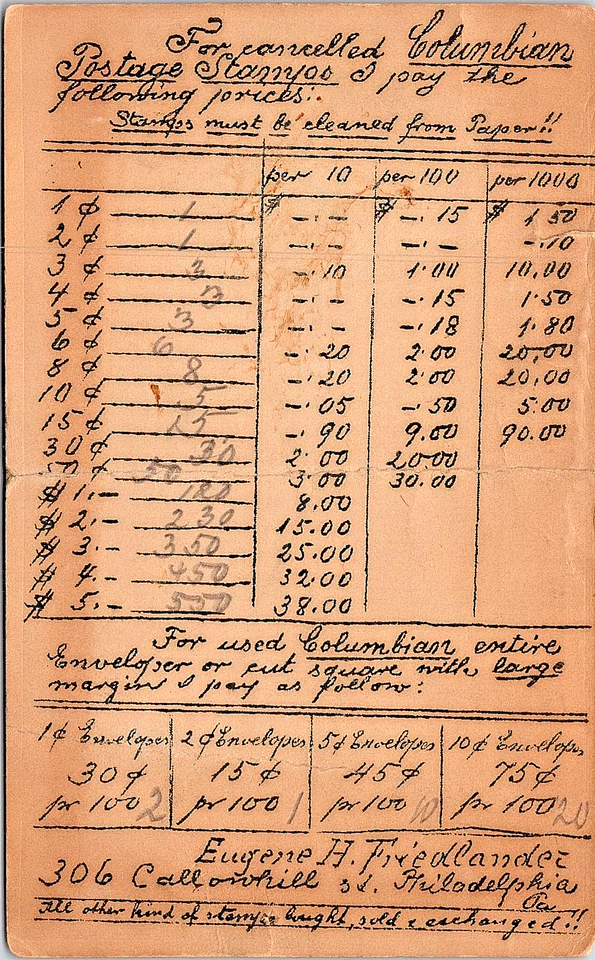 For cancelled Columbian
Postage Stamps I pay the
following prices:
Stamps must be cleaned from Paper!!
per 10 per 100 per 1000
1 ¢ 1 $ -.- $ -.15 $ 1.50
2 ¢ 1 -.- -- -.10
3 ¢ 3 -.10 1.00 10.00
4 ¢ 3 -.- -.15 1.50
5 ¢ 3 -.- -.18 1.80
6 ¢ 6 -.20 2.00 20.00
8 ¢ 8 -.20 2.00 20.00
10 ¢ 5 -.05 -.50 5.00
15 ¢ 15 -.90 9.00 90.00
30 ¢ 30 2.00 20.00
50 ¢ 50 3.00 30.00
$ 1.- 8.00
$ 2.- 230 15.00
$ 3.- 350 25.00
$ 4.- 450 32.00
$ 5.- 550 38.00
For used Columbian entire
Envelopes or cut square with large
margins I pay as follow:
1¢ Envelopes 2¢ Envelopes 5¢ Envelopes 10¢ Envelopes
30¢ 15¢ 45¢ 75¢
pr 100 2 pr 100 1 pr 100 10 pr 100 20
Eugene H. Friedlander
306 Callowhill st. Philadelphia
Pa
All other kind of stamps bought, sold & exchanged!!